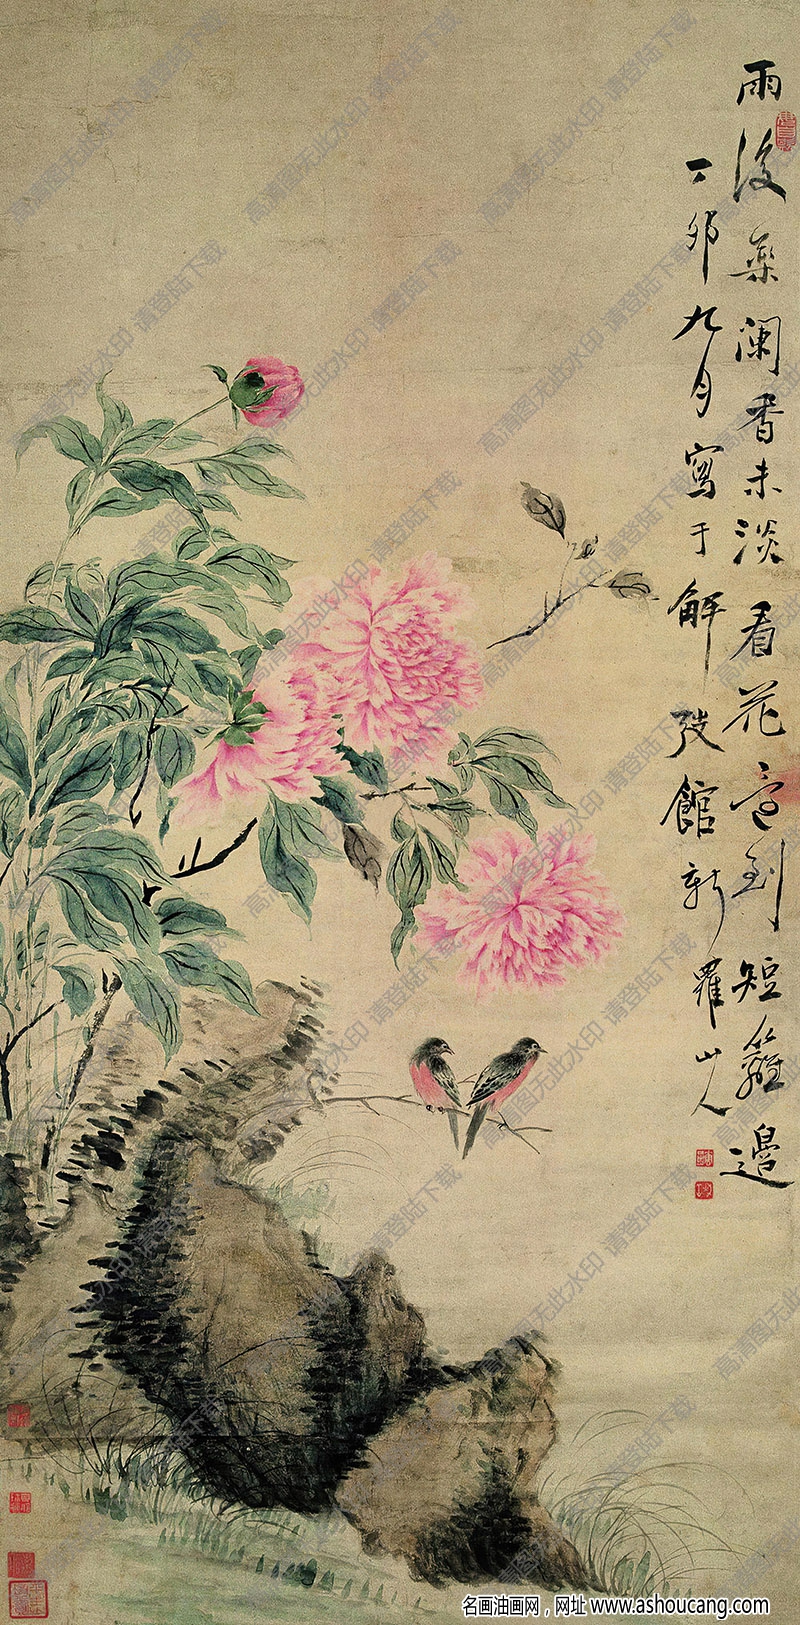 雨後藥瀾香未淡看花立到短籬邊
丁卯九月寫于解弢館新羅山人
高清图无此水印 请登陆下载
名画油画网，网址 www.ashoucang.com